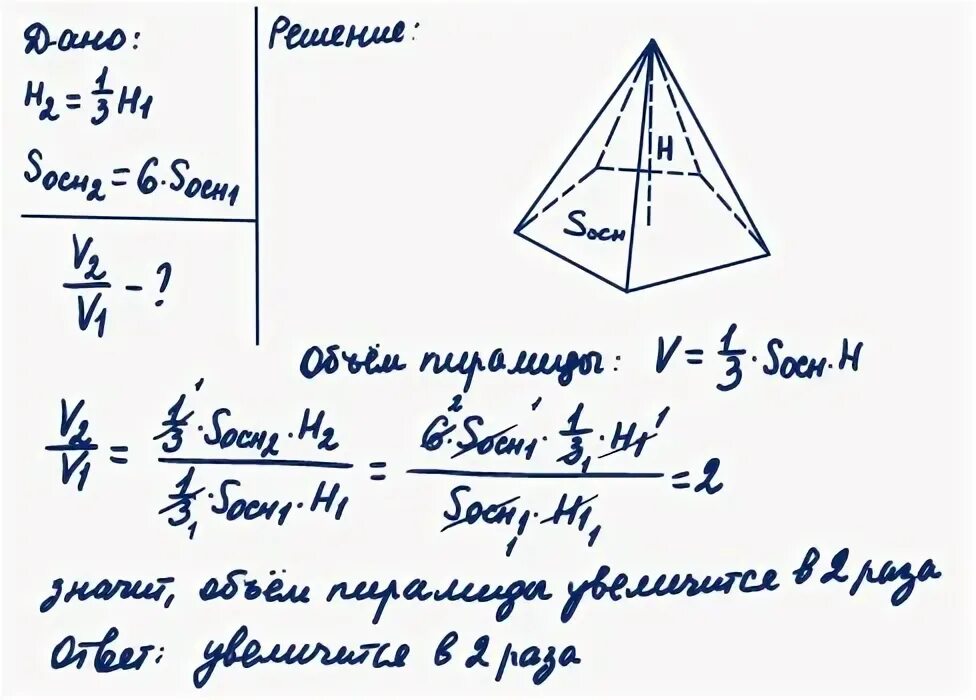 Дано:
H₂ = 1/3 H₁
Sосн₂ = 6 · Sосн₁
V₂/V₁ - ?
Решение:
H
Sосн
Объём пирамиды: V = 1/3 · Sосн · H
V₂/V₁ = (1/3 · Sосн₂ · H₂)/(1/3 · Sосн₁ · H₁) = (6 · Sосн₁ · 1/3 · H₁)/(Sосн₁ · H₁) = 2
значит, объём пирамиды увеличится в 2 раза
Ответ: увеличится в 2 раза